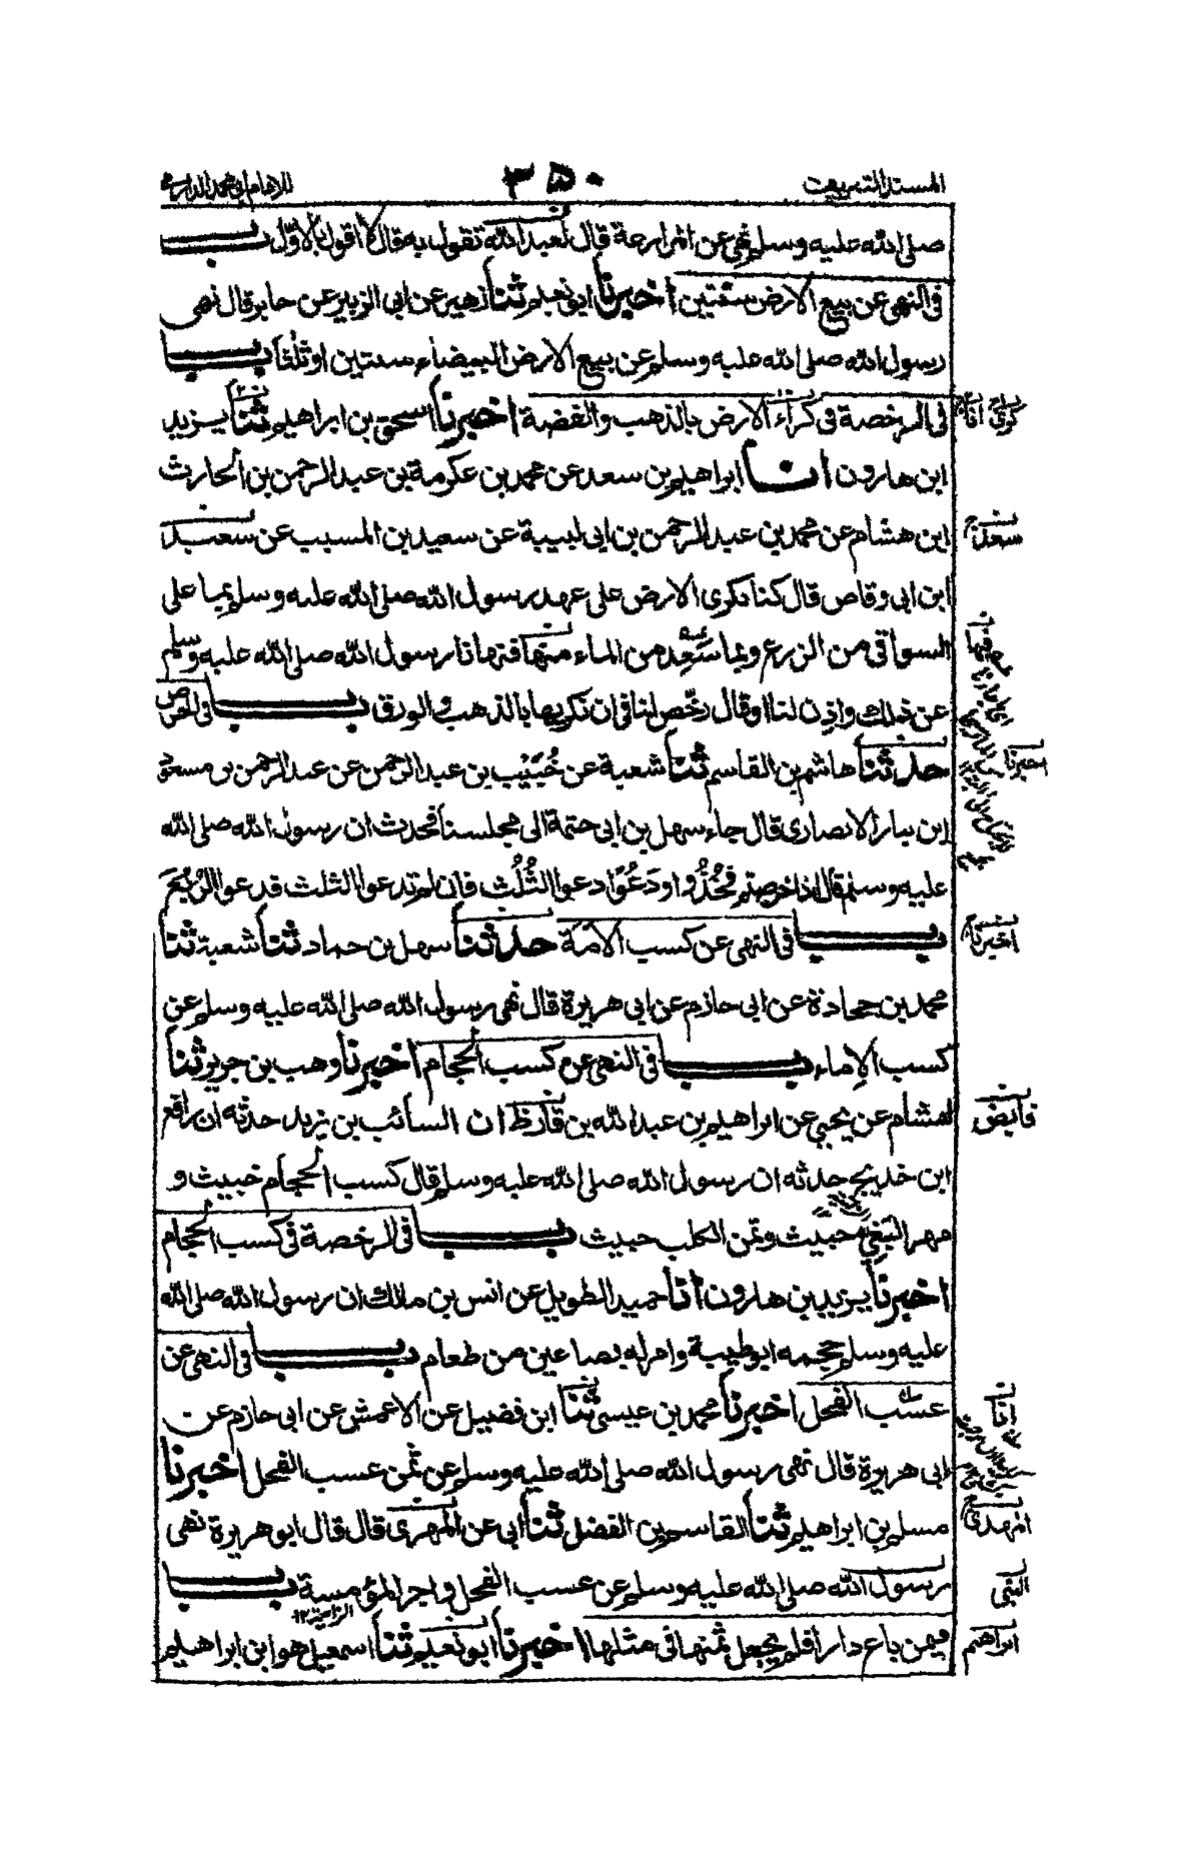 المسند الشريف
٣٥٠
للامام ابي محمد الدارمي
صلى الله عليه وسلم نهى عن المزارعة قال لعبد الله تقول به قال لا اقول بالاول باب
فى النهى عن بيع الارض سنتين اخبرنا ابو نعيم ثنا زهير عن ابى الزبير عن جابر قال نهى
رسول الله صلى الله عليه وسلم عن بيع الارض البيضاء سنتين او ثلثا باب
فى الرخصة فى كراء الارض بالذهب والفضة اخبرنا اسحق بن ابراهيم ثنا يزيد
ابن هارون انا ابراهيم بن سعد عن محمد بن عكرمة بن عبد الرحمن بن الحارث
ابن هشام عن محمد بن عبد الرحمن بن ابى لبيبة عن سعيد بن المسيب عن سعيد
ابن ابى وقاص قال كنا نكرى الارض على عهد رسول الله صلى الله عليه وسلم بما على
السواقى من الزرع وبما سَعِد من الماء منها فنهانا رسول الله صلى الله عليه وسلم
عن ذلك واذن لنا او قال رخّص لنا فى ان نكريها بالذهب والورق باب فى الخرص
حدثنا هاشم بن القاسم ثنا شعبة عن خُبَيْب بن عبد الرحمن عن عبد الرحمن بن مسعود
ابن نيار الانصارى قال جاء سهل بن ابى حثمة الى مجلسنا فحدث ان رسول الله صلى الله
عليه وسلم قال اذا خرصتم فَخُذُوا ودَعُوا دعوا الثُلُث فان لم تدعوا الثلث فدعوا الرُبُعَ
باب فى النهى عن كسب الامَة حدثنا سهل بن حماد ثنا شعبة ثنا
محمد بن جحادة عن ابى حازم عن ابى هريرة قال نهى رسول الله صلى الله عليه وسلم عن
كسب الإماء باب فى النهى عن كسب الحجام اخبرنا وهب بن جرير ثنا
هشام عن يحيى عن ابراهيم بن عبد الله بن قارظ ان السائب بن يزيد حدثه ان رافع
ابن خديج حدثه ان رسول الله صلى الله عليه وسلم قال كسب الحجام خبيث و
مهر البَغِىّ خبيث وثمن الكلب خبيث باب فى الرخصة فى كسب الحجام
اخبرنا يزيد بن هارون انا حميد الطويل عن انس بن مالك ان رسول الله صلى الله
عليه وسلم حجمه ابو طيبة وامر له بصاعين من طعام باب فى النهى عن
عسب الفحل اخبرنا محمد بن عيسى ثنا ابن فضيل عن الاعمش عن ابى حازم عن
ابى هريرة قال نهى رسول الله صلى الله عليه وسلم عن ثمن عسب الفحل اخبرنا
مسلم بن ابراهيم ثنا القاسم بن الفضل ثنا ابى عن المهرى قال قال ابو هريرة نهى
رسول الله صلى الله عليه وسلم عن عسب الفحل واجر المؤمسة باب
الزانية ١٢
فيمن باع دارا فلم يجعل ثمنها فى مثلها اخبرنا ابو نعيم ثنا اسمعيل هو ابن ابراهيم
كرى
سعد
اخبرنا
اخبرنا
قابض
المهدى
النبى
ابراهيم